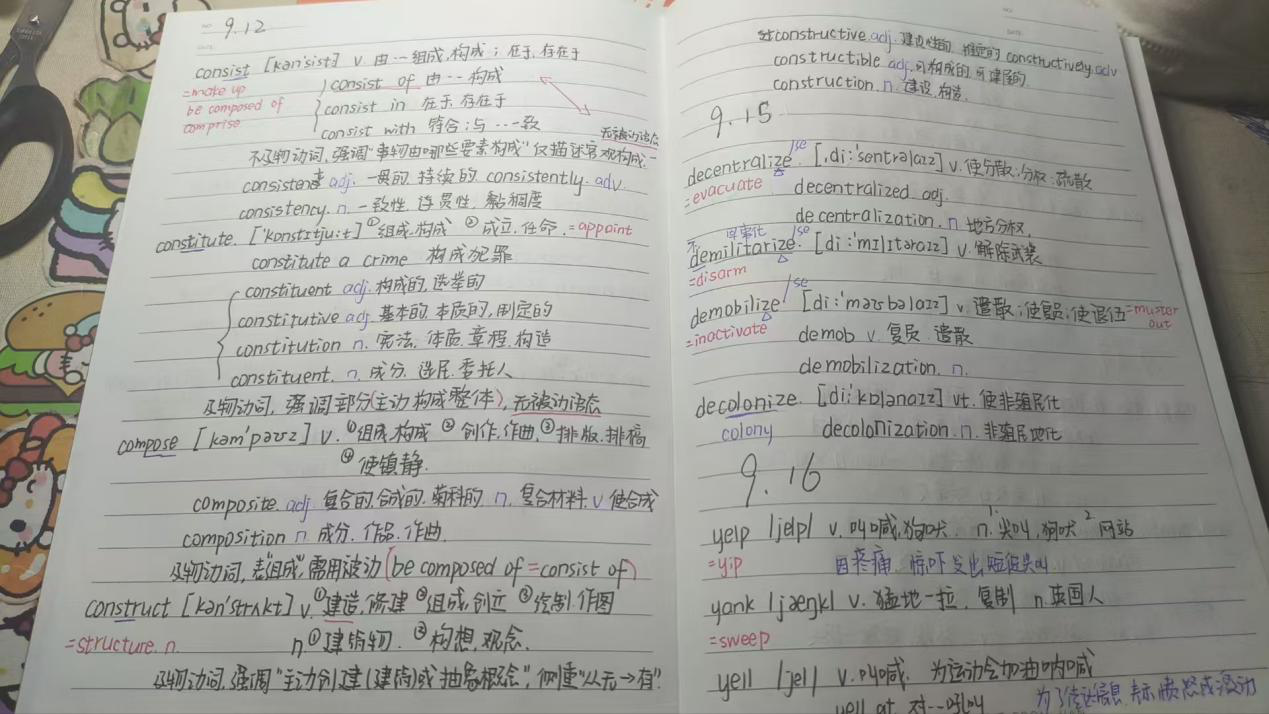 9.12
consist [kən'sist] v. 由…组成,构成；在于,存在于
=make up
consist of 由…构成
be composed of
consist in 在于,存在于
comprise
consist with 符合；与…一致
无被动语态
不及物动词,强调"事物由哪些要素构成"仅描述客观构成.
consistent adj. 一贯的,持续的 consistently. adv.
consistency. n. 一致性,连贯性,黏稠度
constitute. ['kɒnstɪtju:t] ①组成,构成 ②成立,任命.=appoint
constitute a crime 构成犯罪
constituent adj. 构成的,选举的
constitutive adj. 基本的,本质的,制定的
constitution n. 宪法,体质,章程,构造
constituent. n. 成分,选民,委托人
及物动词,强调部分(主动构成整体),无被动语态
compose [kəm'pəʊz] v. ①组成,构成 ②创作,作曲,③排版,排稿
④使镇静.
composite. adj. 复合的,合成的,菊科的 n. 复合材料. v 使合成
composition n. 成分,作品,作曲.
及物动词,表"组成",需用被动(be composed of =consist of)
construct [kən'strʌkt] v. ①建造,修建 ②组成,创立 ③绘制,作图
=structure. n.
n ①建筑物. ②构想,观念.
及物动词,强调"主动创建(建筑)或抽象概念",侧重"从无→有".
constructive. adj. 建设性的,推定的 constructively. adv
constructible adj. 可构成的,可建屋的.
construction. n. 建设,构造.
9.15
/se
decentralize. [.di:'sentrəlaɪz] v. 使分散；分权；疏散
=evacuate
decentralized adj.
decentralization. n. 地方分权.
/se
demilitarize. [di:'mɪlɪtəraɪz] v. 解除武装
=disarm
/se
demobilize [di:'məʊbəlaɪz] v. 遣散；使复员；使退伍=muster out
=inactivate
demob v. 复员,遣散
demobilization. n.
decolonize. [di:'kɒlənaɪz] vt. 使非殖民化
colony
decolonization. n. 非殖民地化
9.16
yelp /jelp/ v. 叫喊,狗吠. n. ¹尖叫,狗吠 ²网站
=yip
因疼痛、惊吓发出短促尖叫
yank /jæŋk/ v. 猛地一拉,复制 n. 英国人
=sweep
yell /jel/ v. 叫喊. 为运动会加油呐喊
yell at 对…吼叫